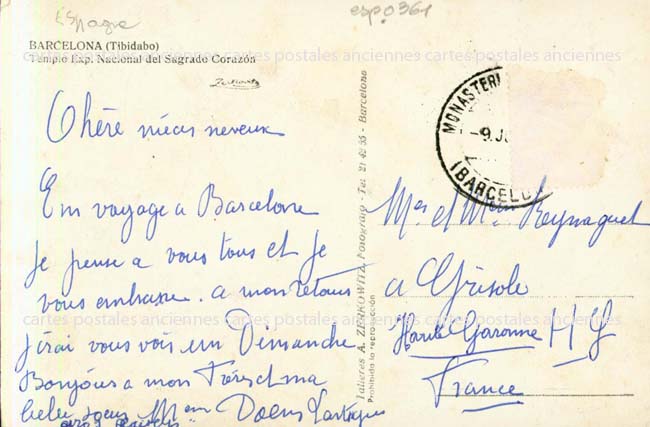 Espagne
esp0361
BARCELONA (Tibidabo)
Templo Exp. Nacional del Sagrado Corazón
Zerkowitz
cartes postales anciennes cartes postales anciennes cartes postales anciennes
Chère niéces neveux
Em voyage a Barcelone
Je pense a vous tous et je
vous embrasse. a mon retour
J'irai vous voir un Dimanche
Bonjours a mon Frère et ma
belle soeur Mem
Talleres A. ZERKOWITZ, Fotógrafo - Tel. 21 42 55 - Barcelona
Prohibida la reproducción
MONASTERI
-9.JU
(BARCELO
Mer et Mem Reynaguet
a Grisole
Haute Garonne H G
France
cartes postales anciennes cartes postales anciennes cartes postales anciennes